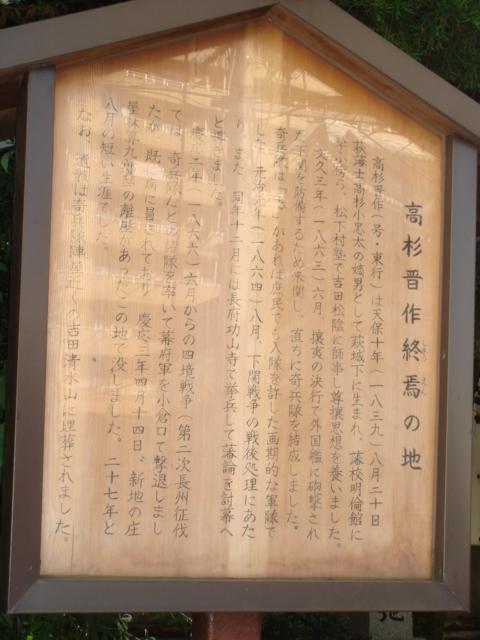 高杉晋作終焉の地
しゅうえん
高杉晋作(号・東行)は天保十年(一八三九)八月二十日
萩藩士高杉小忠太の嫡男として萩城下に生まれ、藩校明倫館に
学ぶ傍ら、松下村塾で吉田松陰に師事し尊攘思想を養いました。
文久三年(一八六三)六月、攘夷の決行で外国艦に砲撃され
た下関を防備するため来関し、直ちに奇兵隊を結成しました。
奇兵隊は「志」があれば庶民でも入隊を許した画期的な軍隊で
した。元治元年(一八六四)八月、下関戦争の戦後処理にあた
り、また、同年十二月には長府功山寺で挙兵して藩論を討幕へ
と導きました。
慶応二年(一八六六)六月からの四境戦争(第二次長州征伐
では、奇兵隊など諸隊を率いて幕府軍を小倉口で撃退しまし
たが、既に病に冒されており、慶応三年四月十四日、新地の庄
屋林算九郎邸の離座があったこの地で没しました。二十七年と
八月の短い生涯でした。
なお、遺骸は奇兵隊陣屋近くの吉田清水山に埋葬されました。